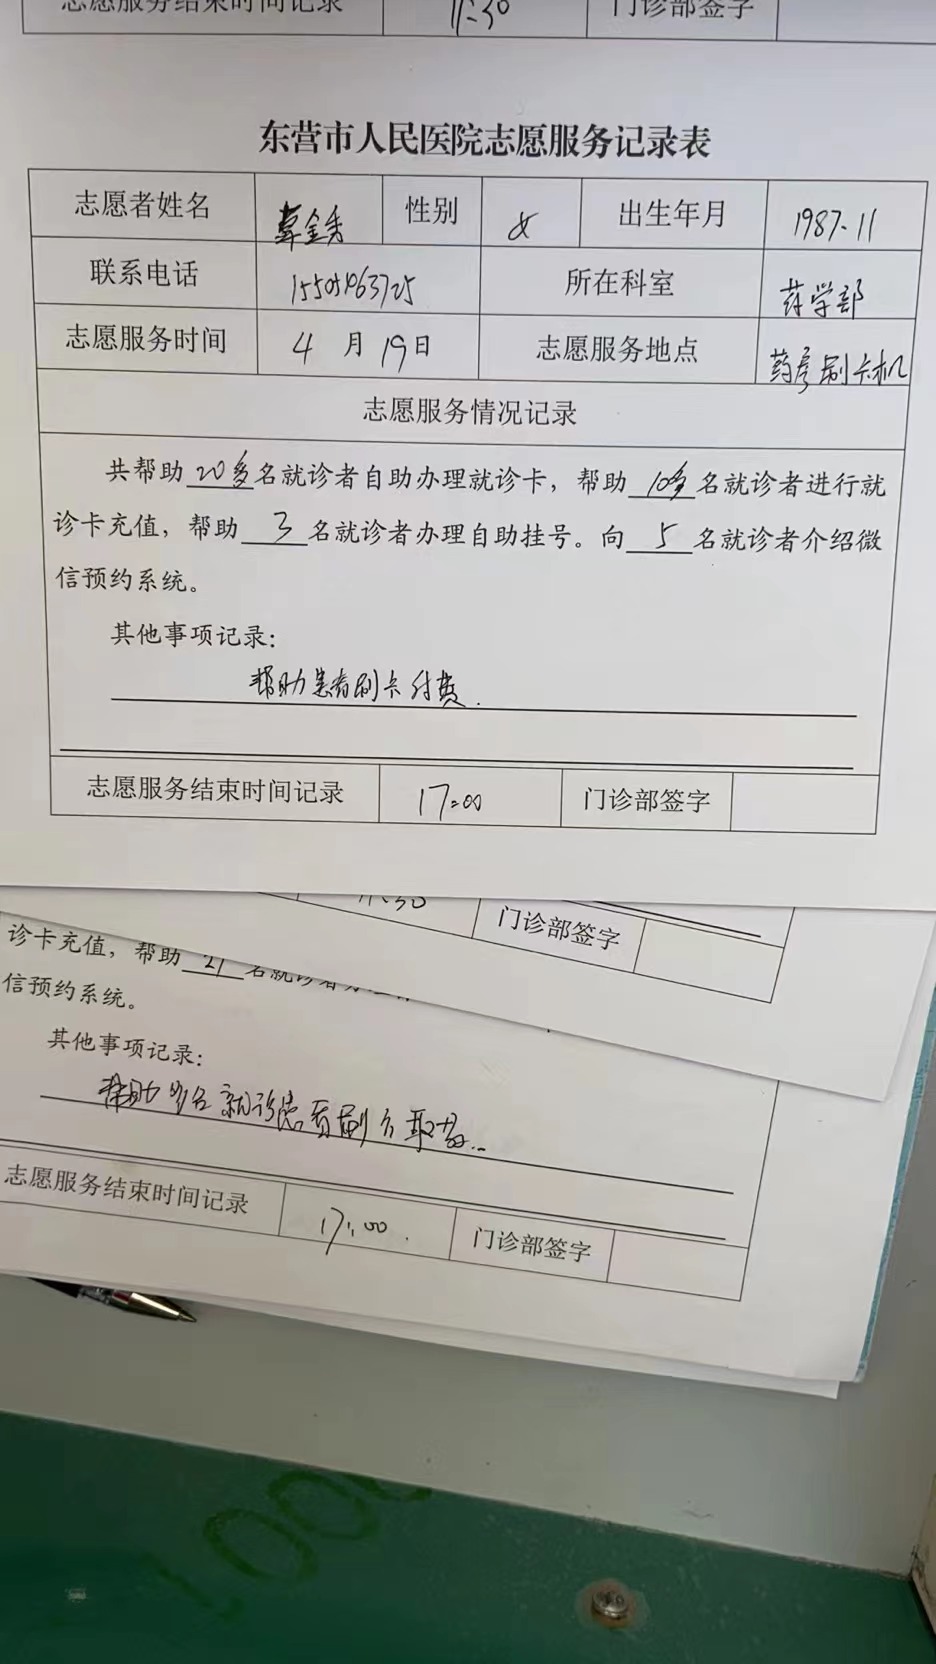 志愿服务结束时间记录 11:30 门诊部签字
东营市人民医院志愿服务记录表
志愿者姓名 金秀 性别 女 出生年月 1987.11
联系电话 所在科室 药学部
志愿服务时间 4 月 19 日 志愿服务地点 药房刷卡机
志愿服务情况记录
共帮助 20多 名就诊者自助办理就诊卡，帮助 10多 名就诊者进行就
诊卡充值，帮助 3 名就诊者办理自助挂号。向 5 名就诊者介绍微
信预约系统。
其他事项记录：
帮助患者刷卡付费.
志愿服务结束时间记录 17:00 门诊部签字
11:30 门诊部签字
诊卡充值，帮助 名就诊者办
信预约系统。
其他事项记录：
帮助多名就诊患者刷卡取药..
志愿服务结束时间记录 17:00. 门诊部签字
100